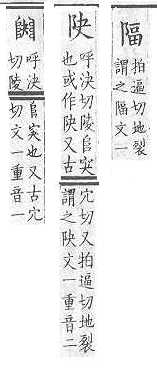 拍逼切地裂
謂之文一
呼決切陵𨸏突
也或作又古
穴切又拍逼切地裂
謂之文一重音二
呼決
切陵
𨸏突也又古穴
切文一重音一